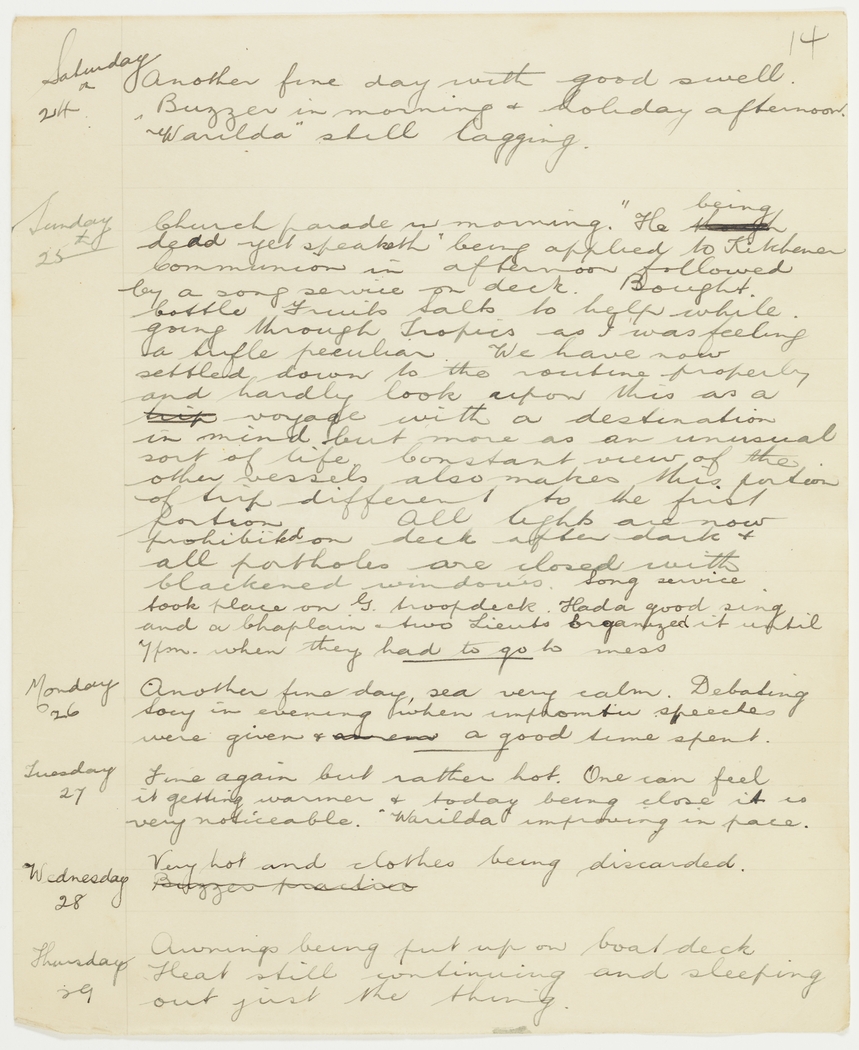 14
Saturday Another fine day with good swell.
24 Buzzer in morning & holiday afternoon.
"Warilda" still lagging.
being
Sunday Church parade in morning. "He though
25 dead yet speaketh" being applied to Kitchener
Communion in afternoon followed
by a song service on deck. Bought
bottle Fruits Salts to help while
going through Tropics as I was feeling
a trifle peculiar. We have now
settled down to the routine properly
and hardly look upon this as a
trip voyage with a destination
in mind but more as an unusual
sort of life. Constant view of the
other vessels also makes this portion
of trip different to the first
portion All lights are now
prohibited on deck after dark &
all portholes are closed with
blackened windows. Song service
took place on G. troopdeck. Had a good sing
and a Chaplain & two Lieuts organized it until
7pm. when they had to go to mess
Monday Another fine day, sea very calm. Debating
26 Socy in evening when impromtu speeches
were given & a good time spent.
Tuesday Fine again but rather hot. One can feel
27 it getting warmer & today being close it is
very noticeable. "Warilda" improving in pace.
Wednesday Very hot and clothes being discarded.
28 Buzzer practice
Thursday Awnings being put up on boat deck
29 Heat still continuing and sleeping
out just the thing.